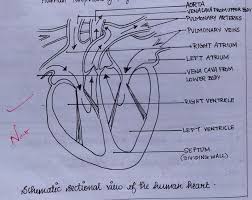 AORTA
VENA CAVA FROM UPPER BODY
PULMONARY ARTERIES
PULMONARY VEINS
RIGHT ATRIUM
LEFT ATRIUM
VENA CAVA FROM
LOWER BODY
RIGHT VENTRICLE
LEFT VENTRICLE
SEPTUM
(DIVIDING WALL)
Schematic sectional view of the human heart.